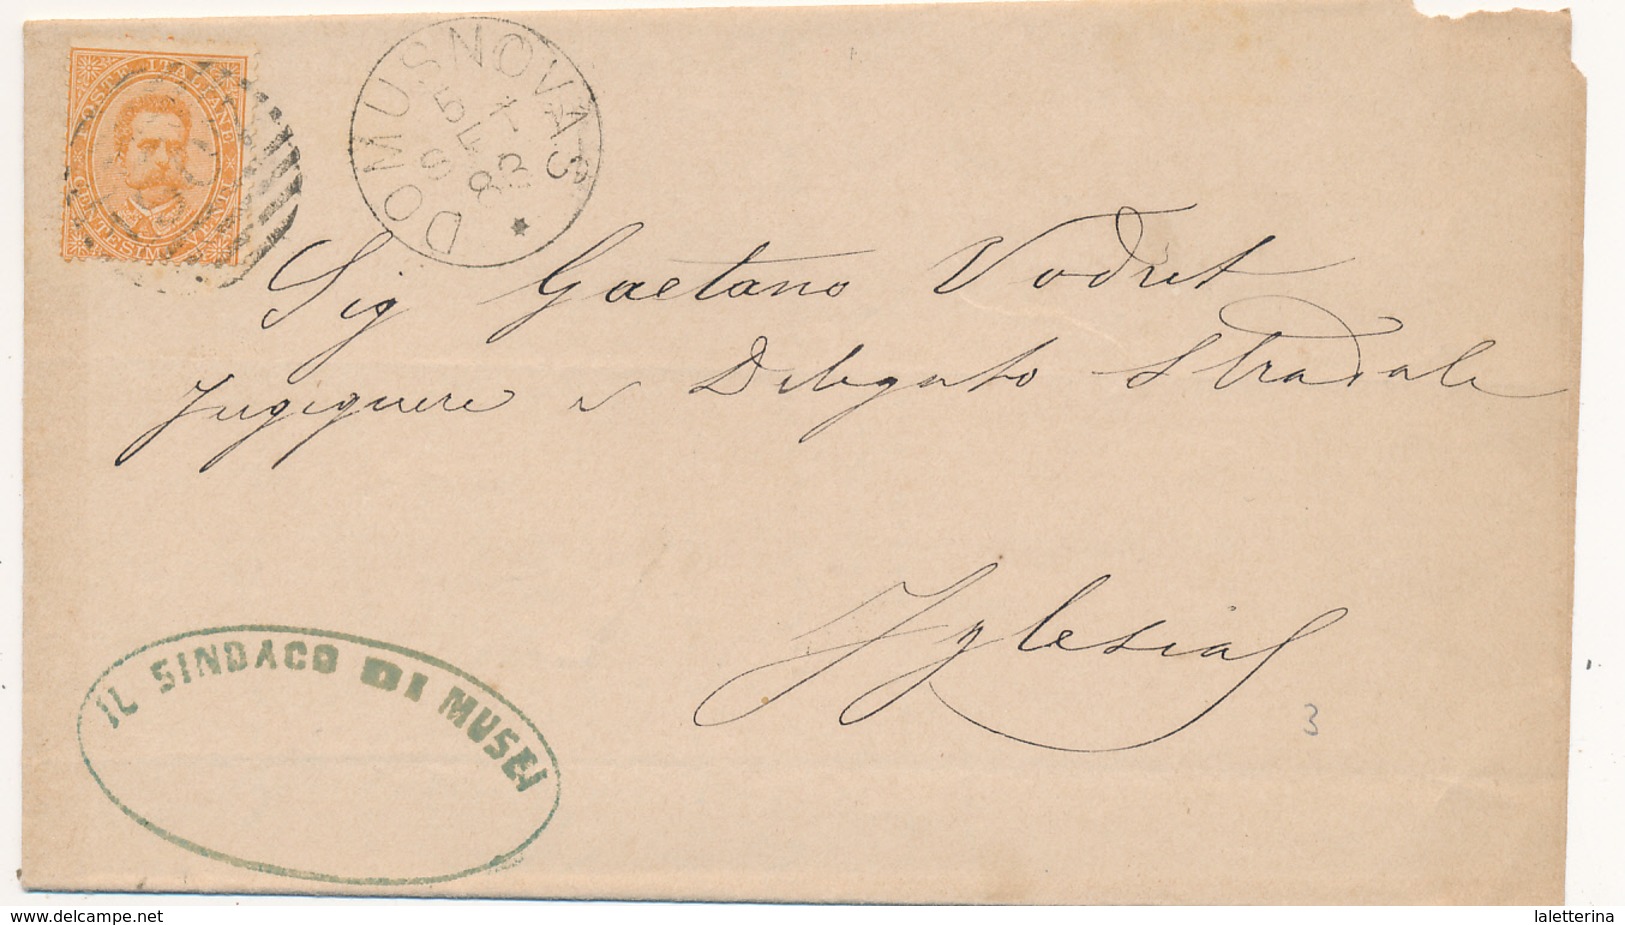 POSTE ITALIANE
CENTESIMI VENTI
DOMUSNOVAS
5 SET
Sig Gaetano Vodret
Ingegnere e Delegato Stradale
Yglesias
IL SINDACO DI MUSEI
3
www.delcampe.net
laletterina